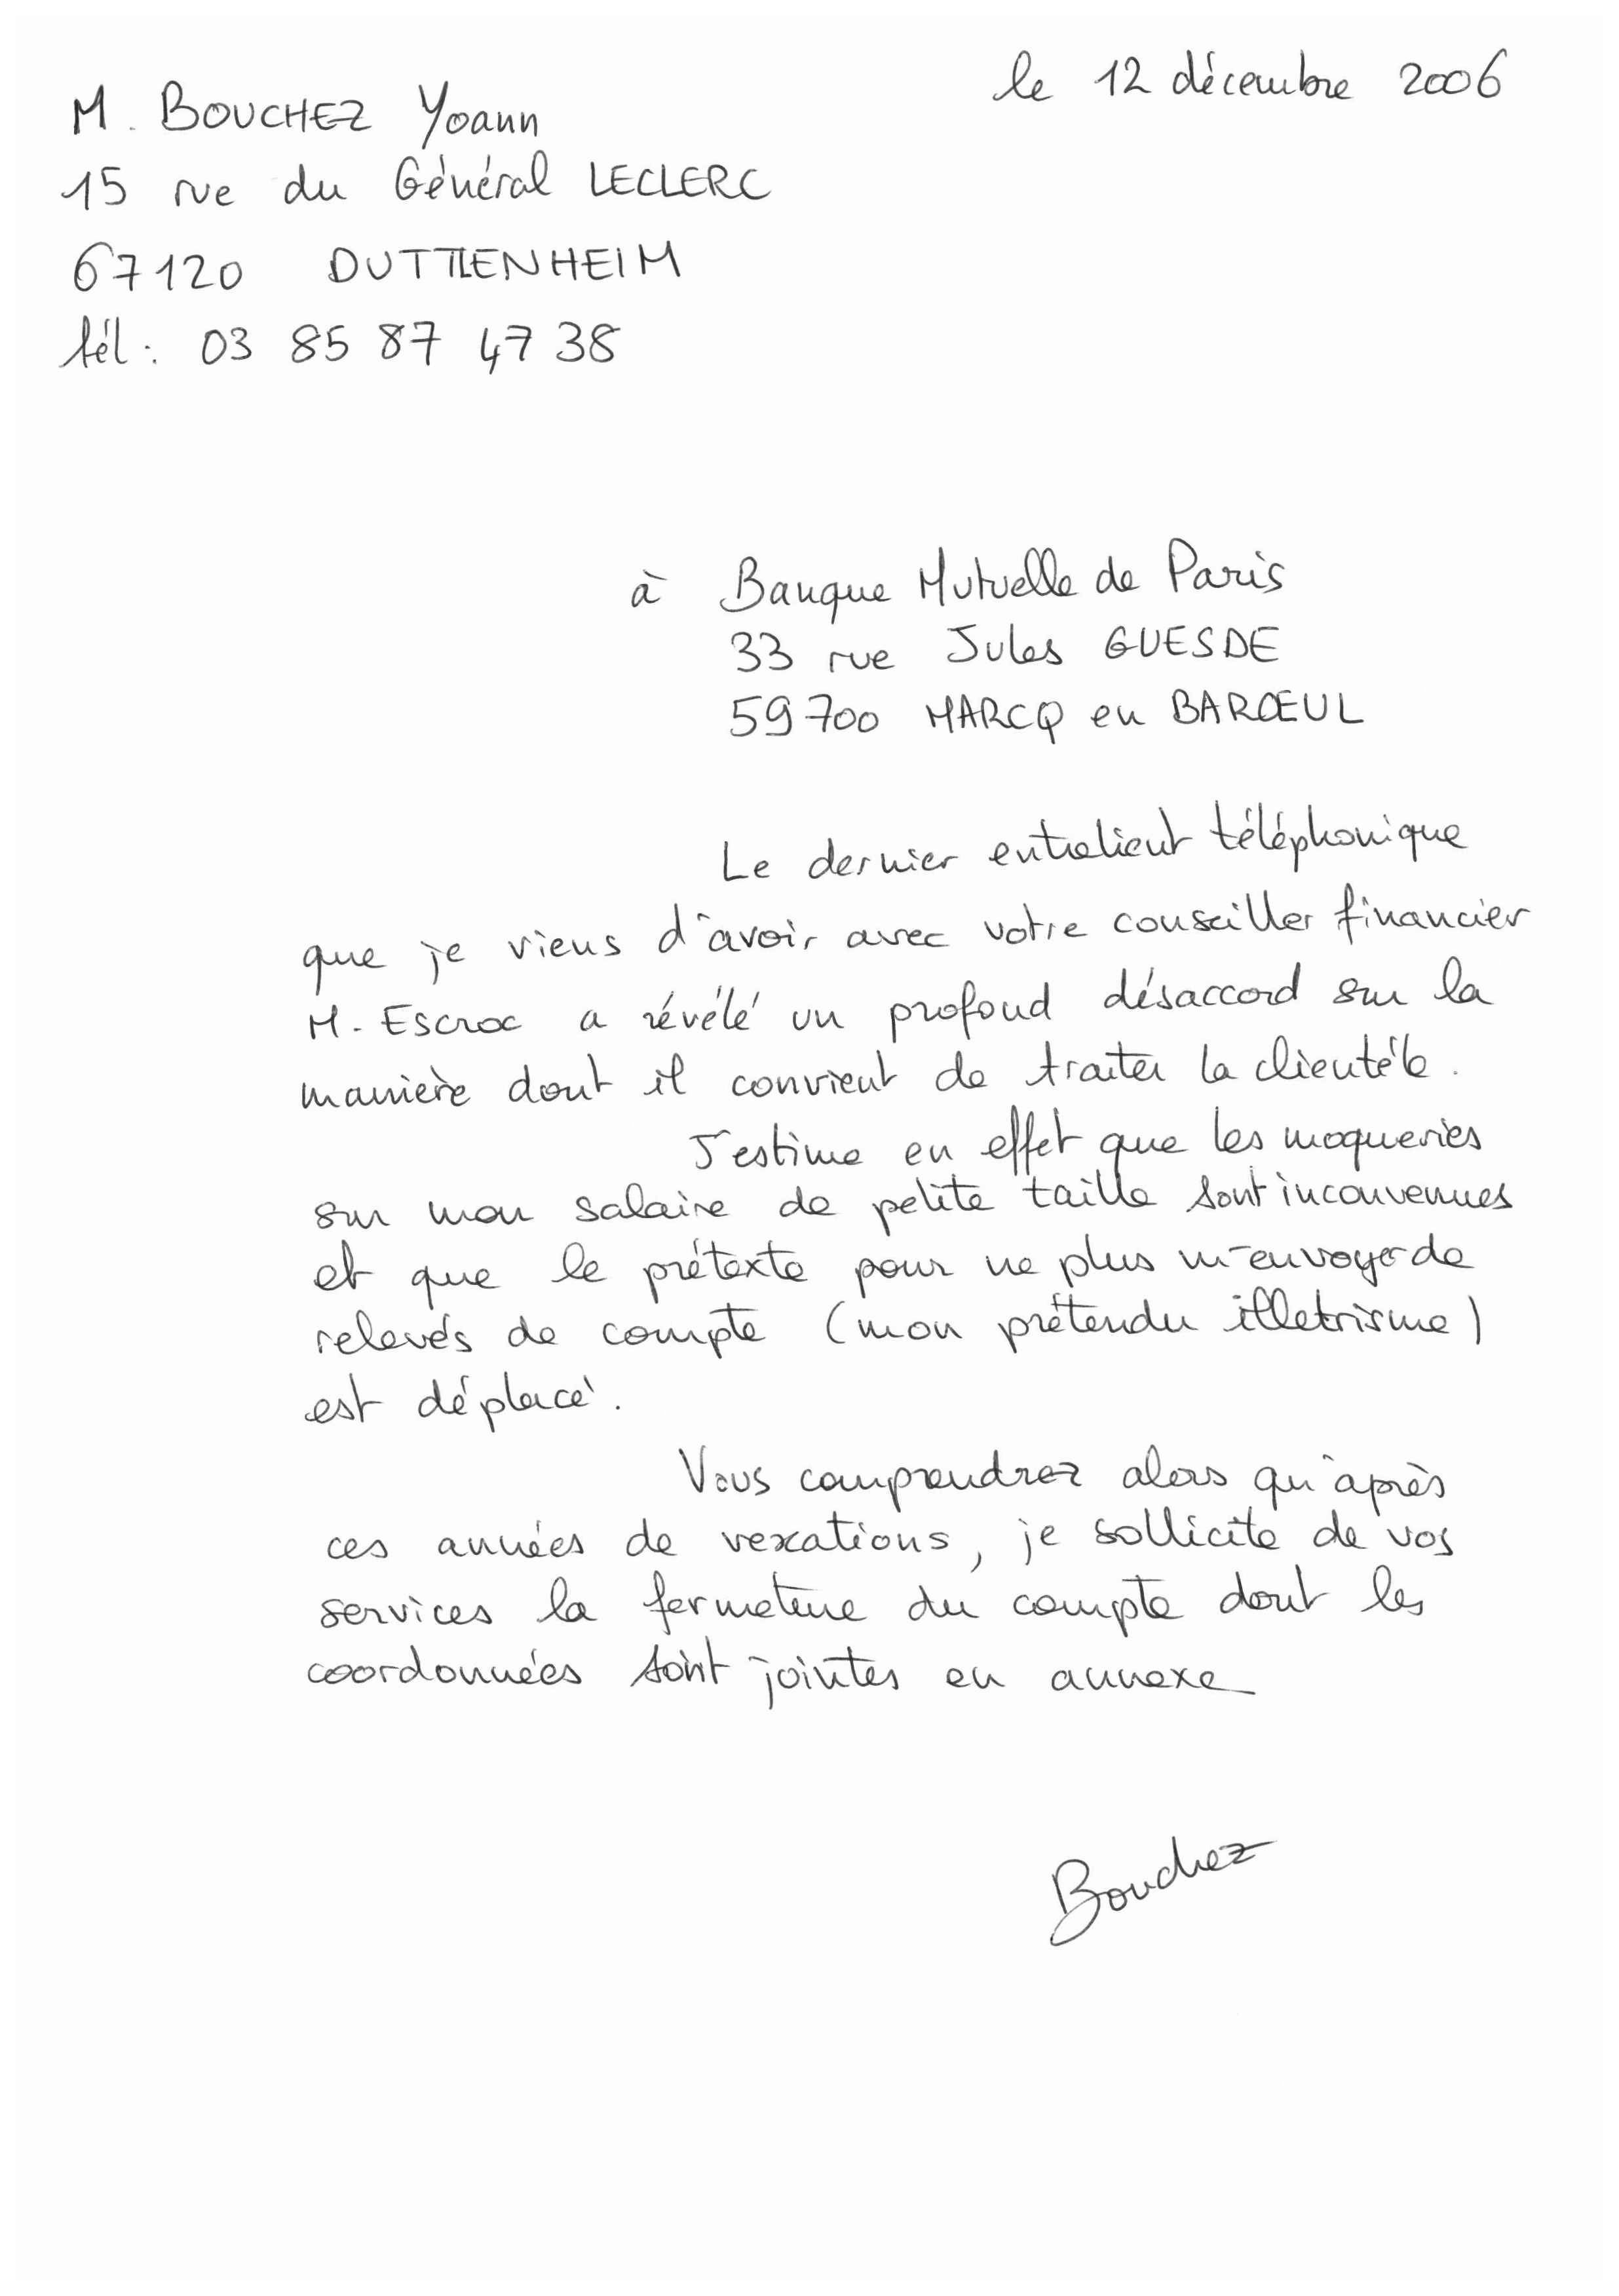 le 12 décembre 2006
M. BOUCHEZ Yoann
15 rue du Général LECLERC
67120 DUTTLENHEIM
tél : 03 85 87 47 38
à Banque Mutuelle de Paris
33 rue Jules GUESDE
59700 MARCQ en BARŒUL
Le dernier entretient téléphonique
que je viens d'avoir avec votre conseiller financier
M. Escroc a révélé un profond désaccord sur la
manière dont il convient de traiter la clientéle.
J'estime en effet que les moqueries
sur mon salaire de petite taille sont inconvenues
et que le prétexte pour ne plus m'envoyer de
relevés de compte (mon prétendu illetrisme)
est déplacé.
Vous comprendrez alors qu'après
ces années de vexations, je sollicite de vos
services la fermeture du compte dont les
coordonnées sont jointes en annexe
Bouchez